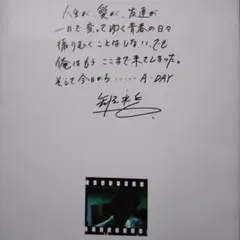 人生が、愛が、友達が
一日で変ってゆく青春の日々
振りむくことはしない、でも
俺はもう ここまで来てしまった。
そして今日から ..... A・DAY